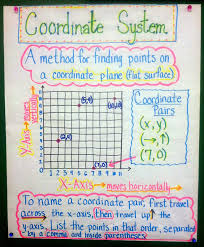 Coordinate System
A method for finding points on
a coordinate plane (flat surface).
Y-Axis → moves vertically
Coordinate
Pairs
(x, y)
(→, ↑)
(7, 0)
(7,0)
X-Axis → moves horizontally
To name a coordinate pair, first travel
across the x-axis, then travel up the
y-axis. List the points in that order, separated
by a comma and inside parentheses.